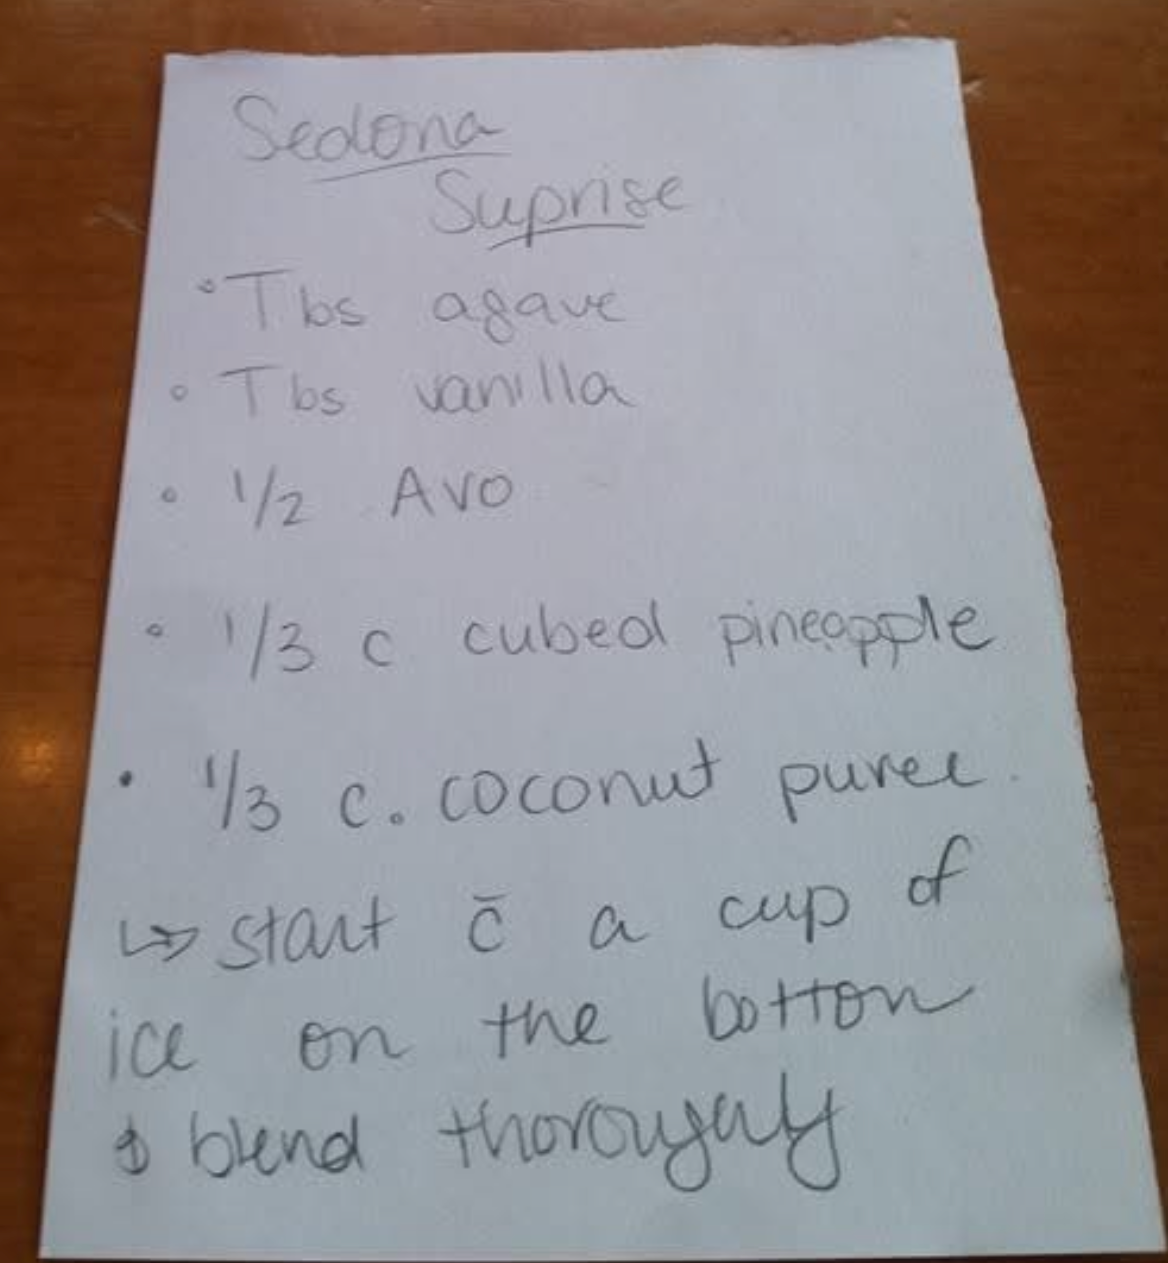 Sedona
Suprise
• Tbs agave
• Tbs vanilla
• 1/2 Avo
• 1/3 c cubed pineapple
• 1/3 c. coconut puree
↳ start c̄ a cup of
ice on the botton
& blend thoroughly